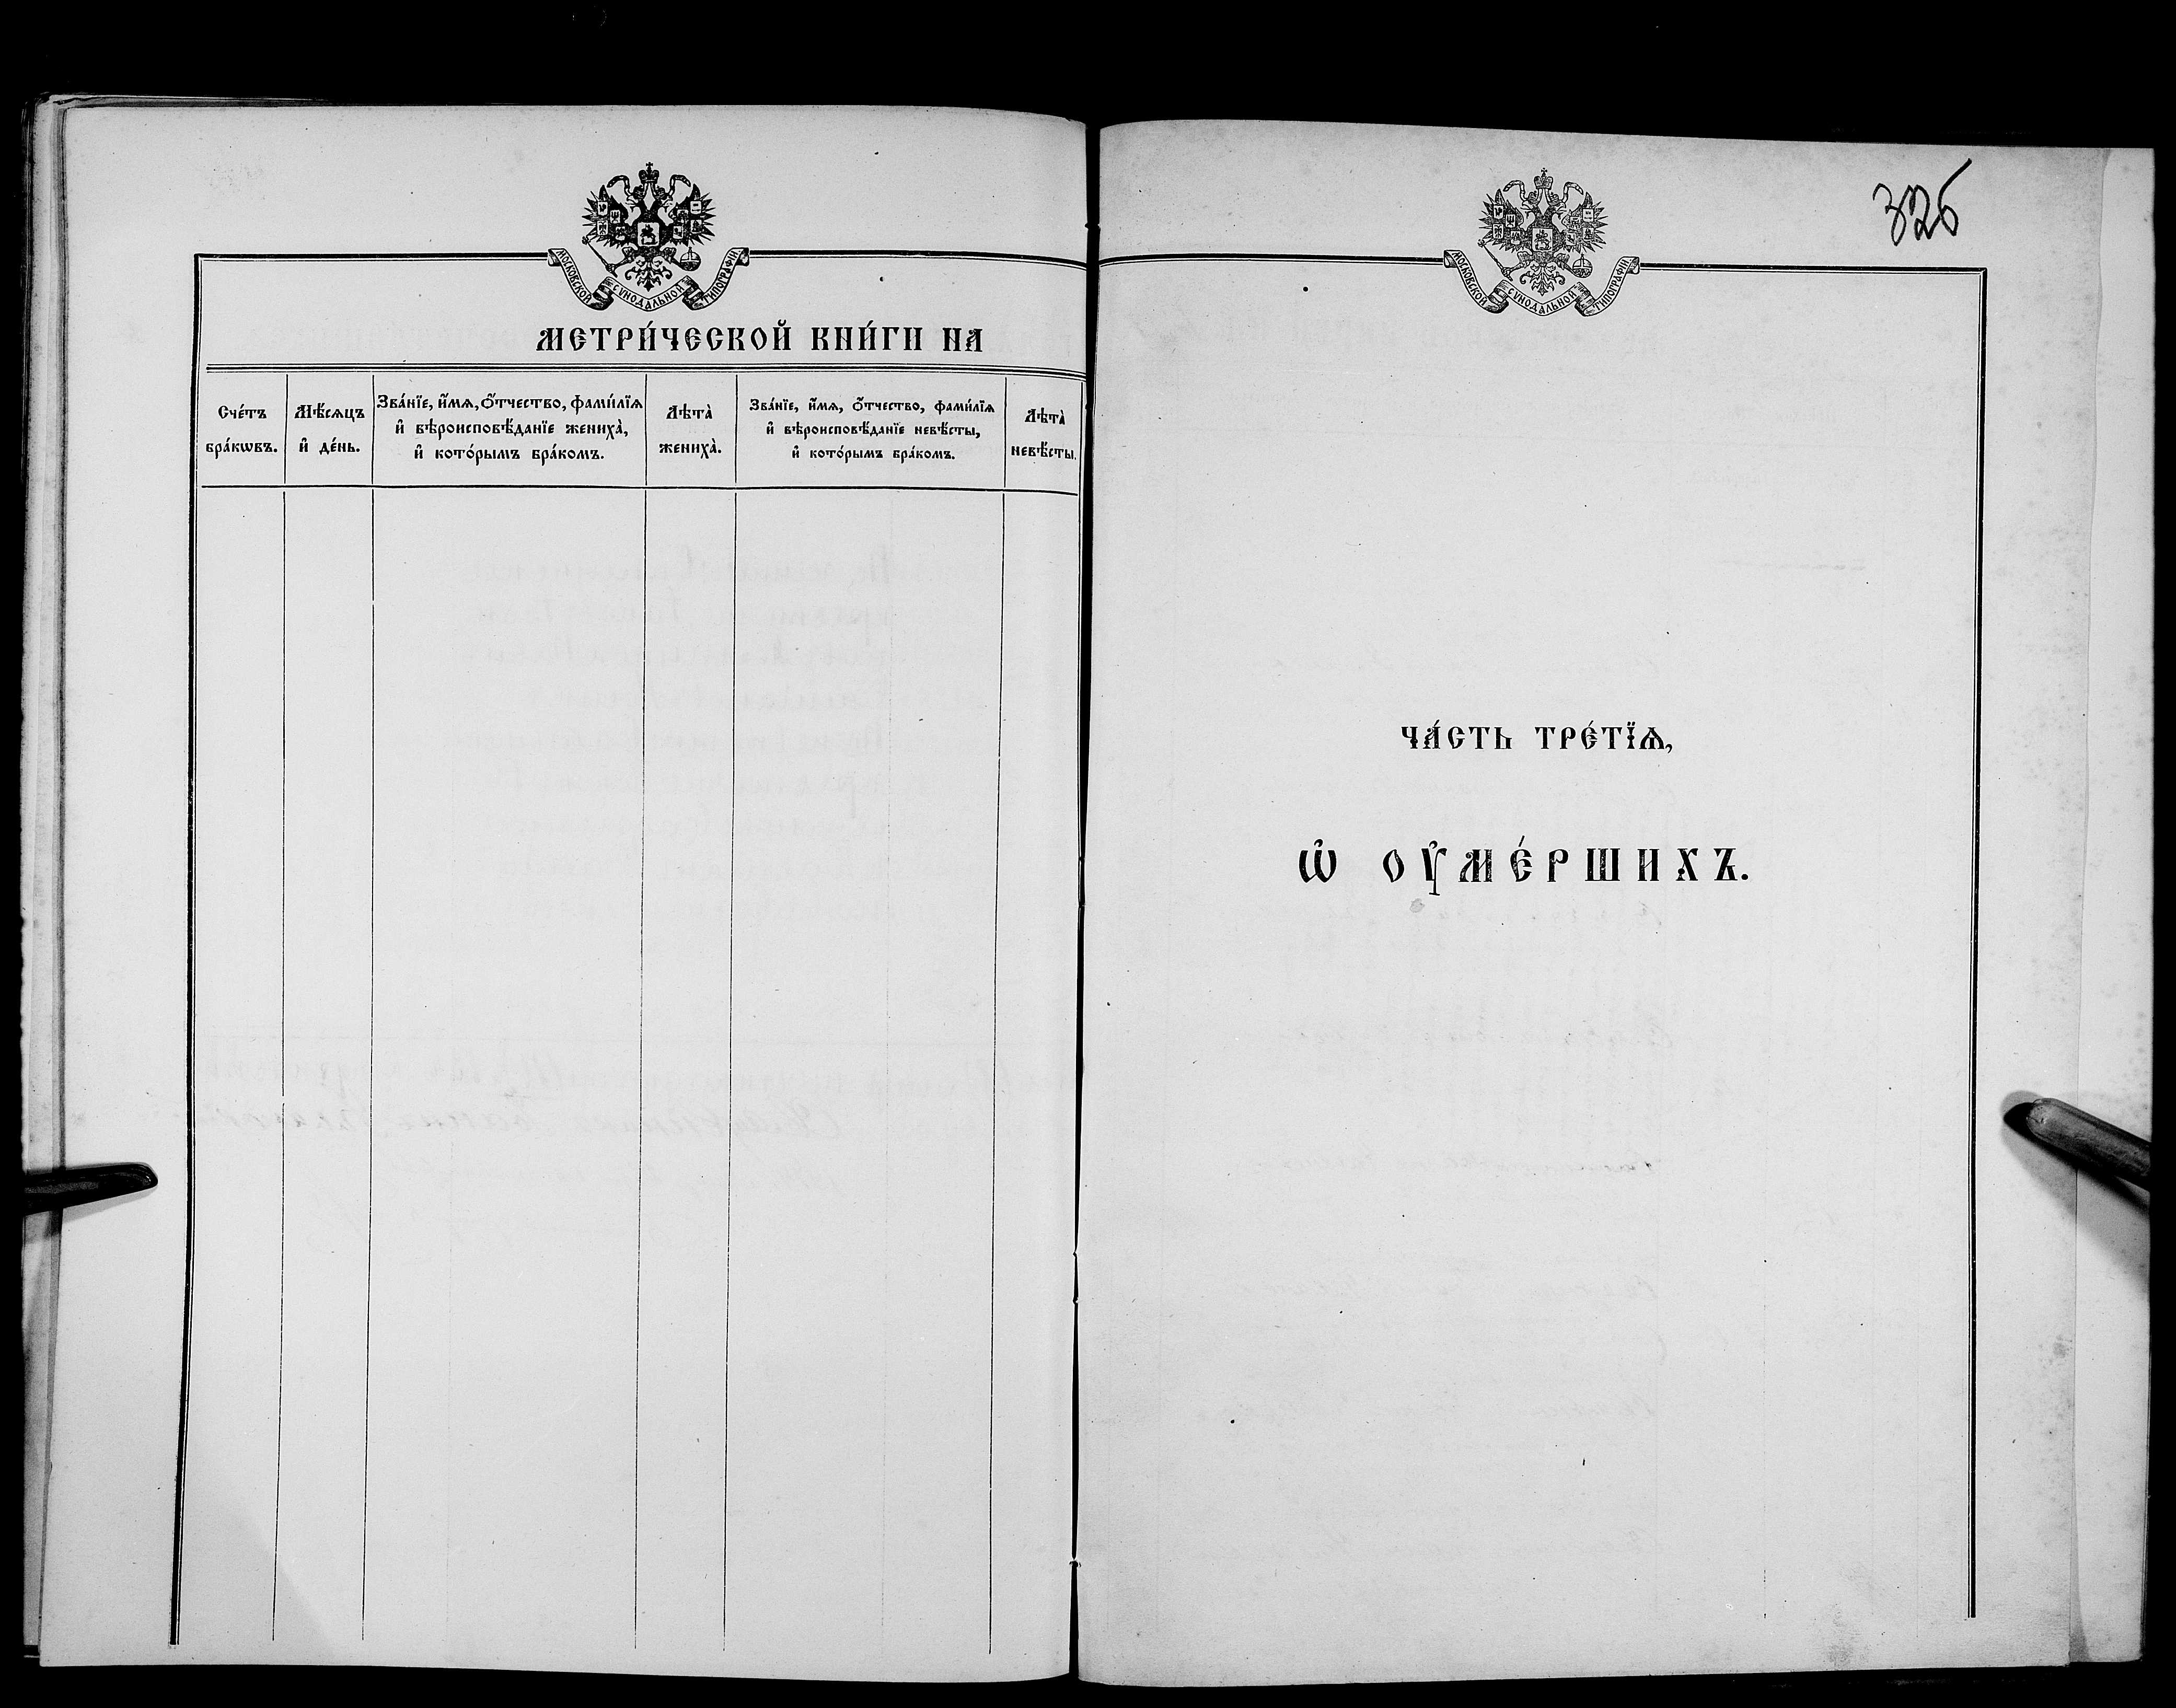 МОСКОВСКОЙ СѴНОДАЛЬНОЙ ТИПОГРАФІИ
МЕТРИ́ЧЕСКОЙ КНИ́ГИ НА
Сче́тъ
бра́кѡвъ.
Мѣ́сѧцъ
и҆ де́нь.
Зва́нїе, и҆́мѧ, ѻ҆́тчество, фами́лїѧ
и҆ вѣроисповѣ́данїе жениха̀,
и҆ кото́рымъ бра́комъ.
Лѣта̀
жениха̀.
Зва́нїе, и҆́мѧ, ѻ҆́тчество, фами́лїѧ
и҆ вѣроисповѣ́данїе невѣ́сты,
и҆ кото́рымъ бра́комъ.
Лѣта̀
невѣ́сты.
326
МОСКОВСКОЙ СѴНОДАЛЬНОЙ ТИПОГРАФІИ
ЧА́СТЬ ТРЕ́ТЇѦ,
Ѡ҆ ОУ҆МЕ́РШИХЪ.